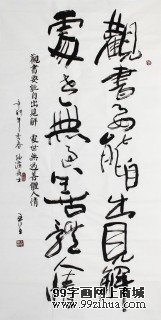 觀書要能自出見解
處世無過善體人情
觀書要能自出見解 處世無過善體人情
99字画网上商城